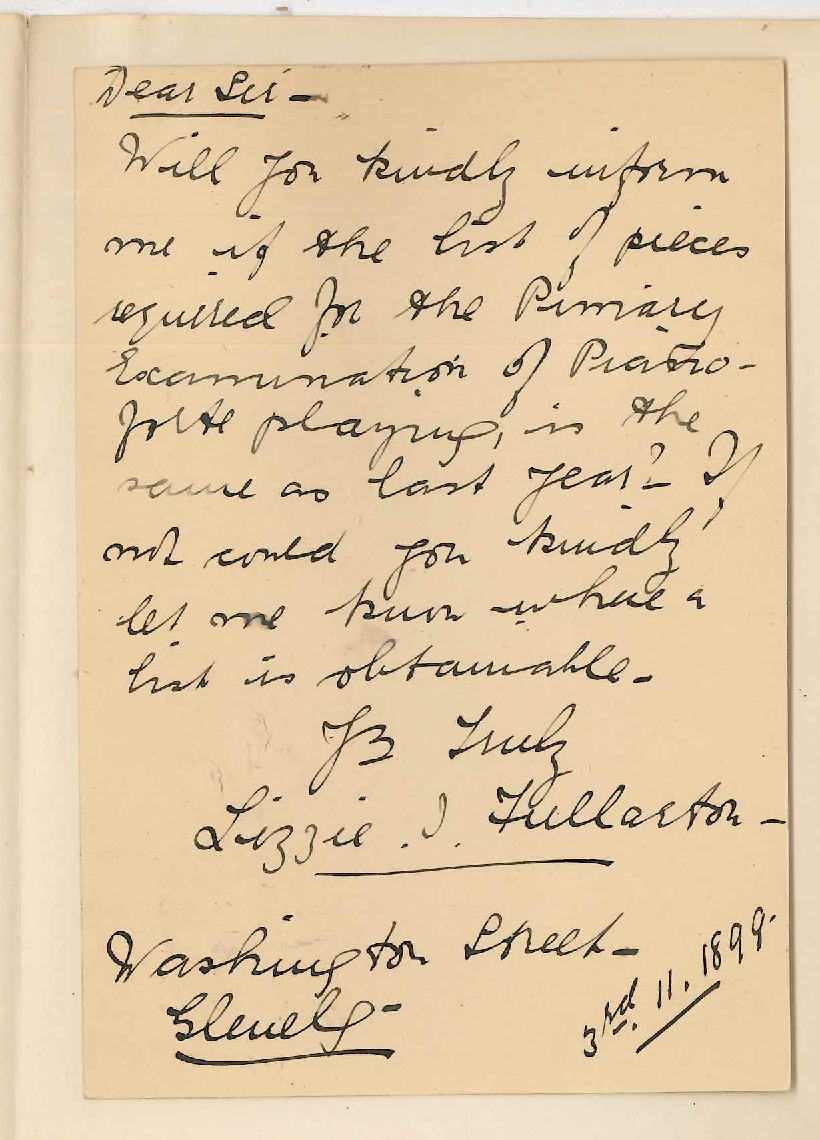 Dear Sir -
Will you kindly inform
me if the list of pieces
required for the Primary
Examination of Piano-
forte playing, is the
same as last year? - If
not could you kindly
let me know where a
list is obtainable -
Yrs truly
Lizzie . J . Fullarton -
Washington Street -
Glenelg -
3rd. 11. 1899.